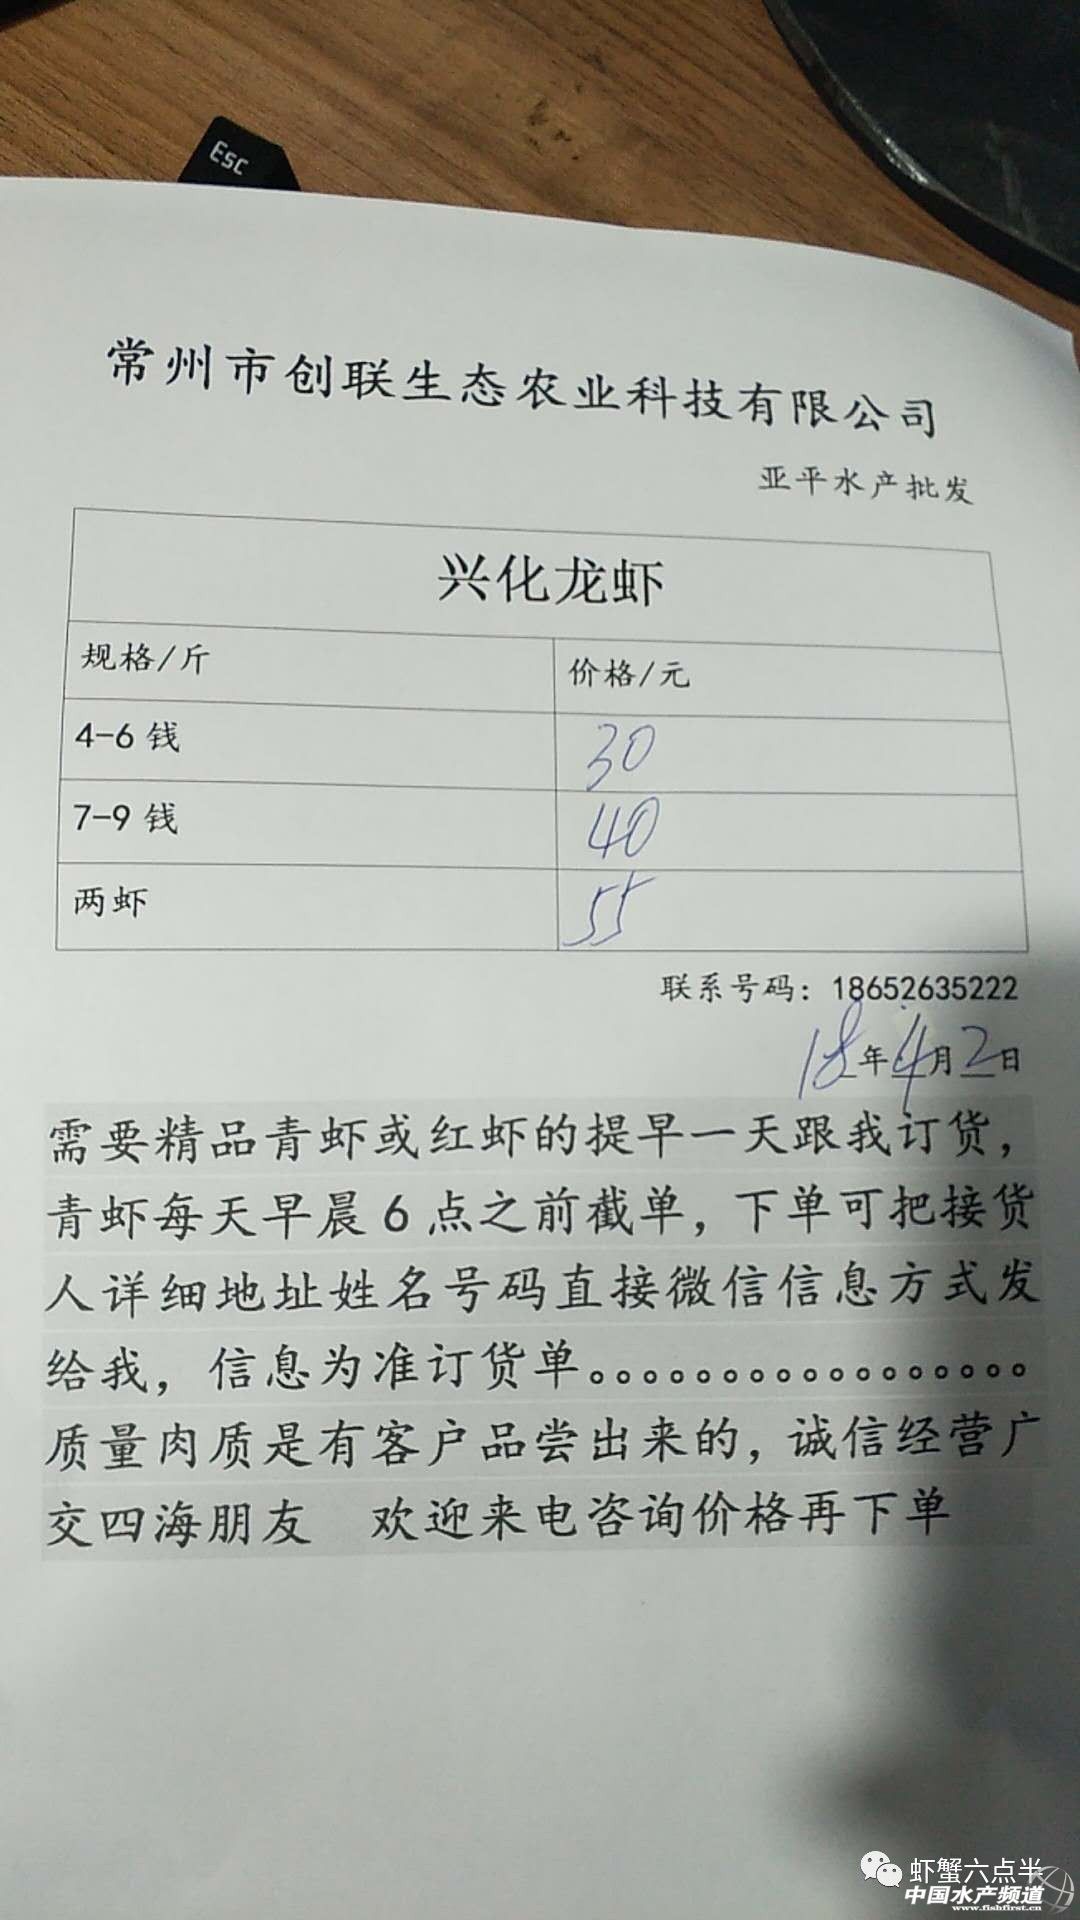 Esc
常州市创联生态农业科技有限公司
亚平水产批发
兴化龙虾
规格/斤 价格/元
4-6 钱 30
7-9 钱 40
两虾 55
联系号码：18652635222
18年4月2日
需要精品青虾或红虾的提早一天跟我订货，
青虾每天早晨6点之前截单，下单可把接货
人详细地址姓名号码直接微信信息方式发
给我，信息为准订货单。。。。。。。。。。。。。。。。。
质量肉质是有客户品尝出来的，诚信经营广
交四海朋友 欢迎来电咨询价格再下单
虾蟹六点半
中国水产频道
www.fishfirst.cn